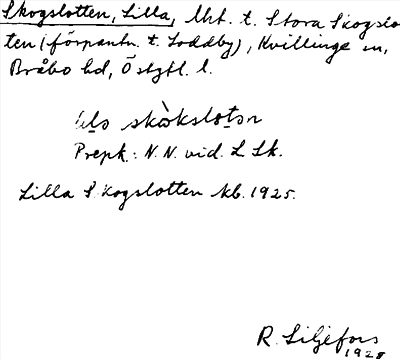 Skogslotten, Lilla, lht. t. Stora Skogslo
ten (förpantn. t. Loddby), Kvillinge sn,
Bråbo hd, Östgtl. l.
skòkslotən
Prepk.: N.N. vid L. Sk.
Lilla Skogslotten kb. 1925.
R. Liljefors
1928